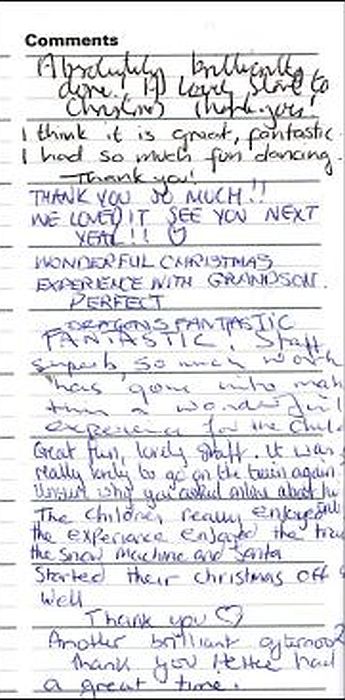 Comments
Absolutely brilliantly
done. A lovely start to
Christmas thank you!
I think it is great, fantastic.
I had so much fun dancing.
Thank you!
THANK YOU SO MUCH!!
WE LOVED IT SEE YOU NEXT
YEAR!! ♡
WONDERFUL CHRISTMAS
EXPERIENCE WITH GRANDSON.
PERFECT
DRAGONS FANTASTIC
FANTASTIC! Staff
superb so much work
has gone into mak
this a wonderful
experience for the child
Great fun, lovely staff. It was
really lovely to go on the train again
Unsure why you asked about
The children really enjoyed
the experience enjoyed the
the snow machine and Santa
Started their christmas off
well
Thank you ♡
Another brilliant afternoon
Thank you had
a great time.